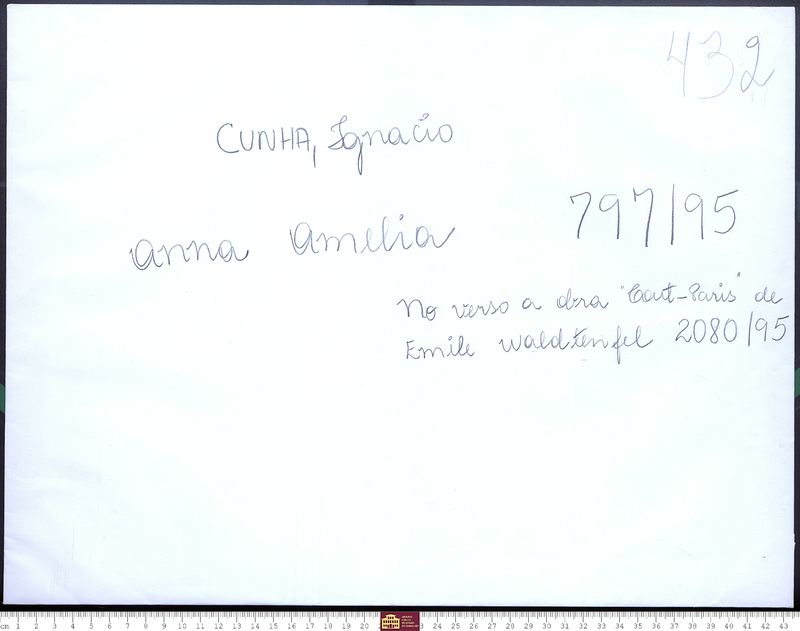 432
CUNHA, Ignacio
Anna Amelia
797/95
No verso a obra "Tout-Paris" de
Emile Waldtenfel 2080/95
cm 1 2 3 4 5 6 7 8 9 10 11 12 13 14 15 16 17 18 19 20 23 24 25 26 27 28 29 30 31 32 33 34 35 36 37 38 39 40 41 42 43